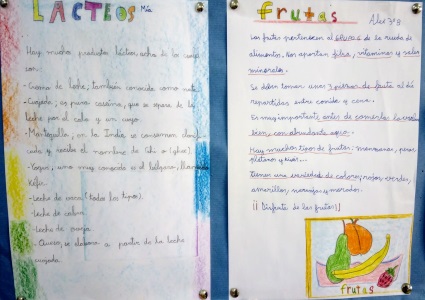 LACTEOS Mia
Hay muchos productos lácteos, ocho de los cuales
son:
- Crema de leche, también conocida como nata.
- Cuajada, es pura caseína, que se separa de la
leche por el calor y un cuajo.
- Mantequilla, en la India se consumen
y recibe el nombre de Ghi o (ghee).
- Yogur, uno muy conocido es el búlgaro, llamado
Kéfir.
- Leche de vaca (todos los tipos).
- Leche de cabra.
- Leche de oveja.
- Queso, se elabora a partir de la leche
cuajada.
frutas Alex 3º B
Las frutas pertenecen al de la rueda de
alimentos. Nos aportan fibra, vitaminas y sales
minerales.
Se deben tomar unas 3 piezas de fruta al día
repartidas entre comida y cena.
Es muy importante antes de comerlas lavarlas
bien, con abundante agua.
Hay muchos tipos de frutas: manzanas, peras,
plátanos y kiwis...
Tienen una variedad de colores, rojos, verdes,
amarillos, naranjas y morados.
¡¡Disfruta de las frutas!!
frutas